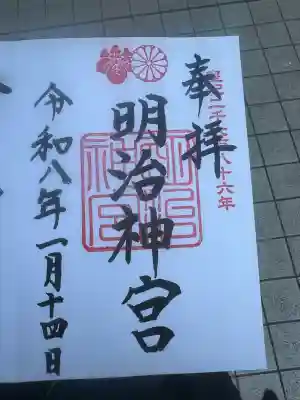 奉拝
皇紀二千六百八十六年
明治神宮
令和八年一月十四日